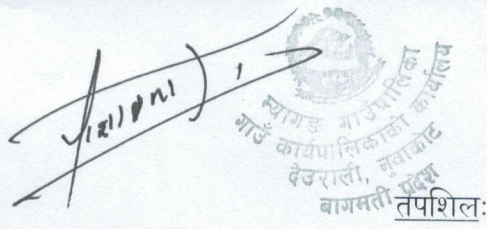 म्यागङ गाउँपालिका
गाउँ कार्यपालिकाको कार्यालय
देउराली, नुवाकोट
बागमती प्रदेश
तपशिल: